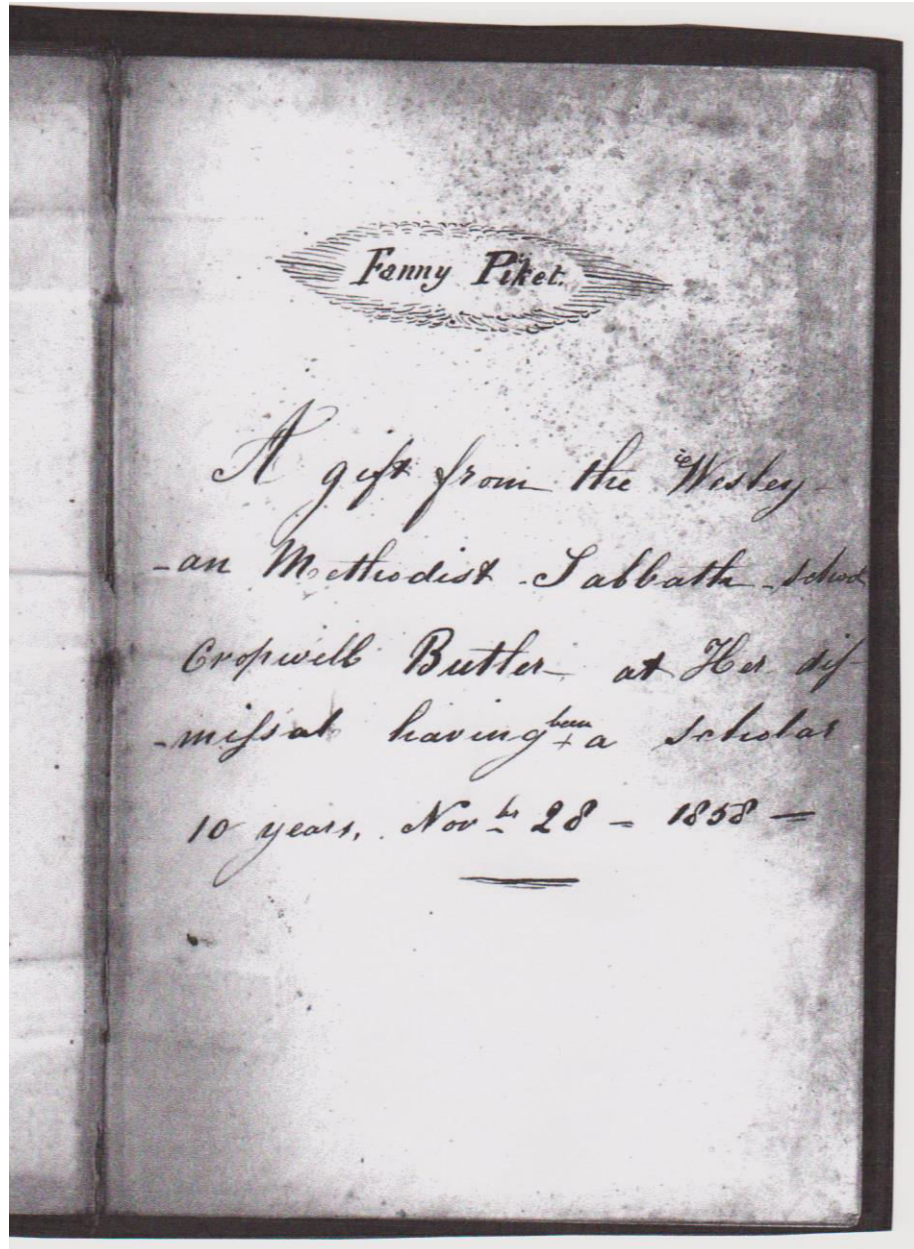 Fanny Piket.
A gift from the Wesley-
-an Methodist Sabbath school
Cropwell Butler at Her dis-
-missal having been a scholar
10 years. Novbr 28 - 1858 -